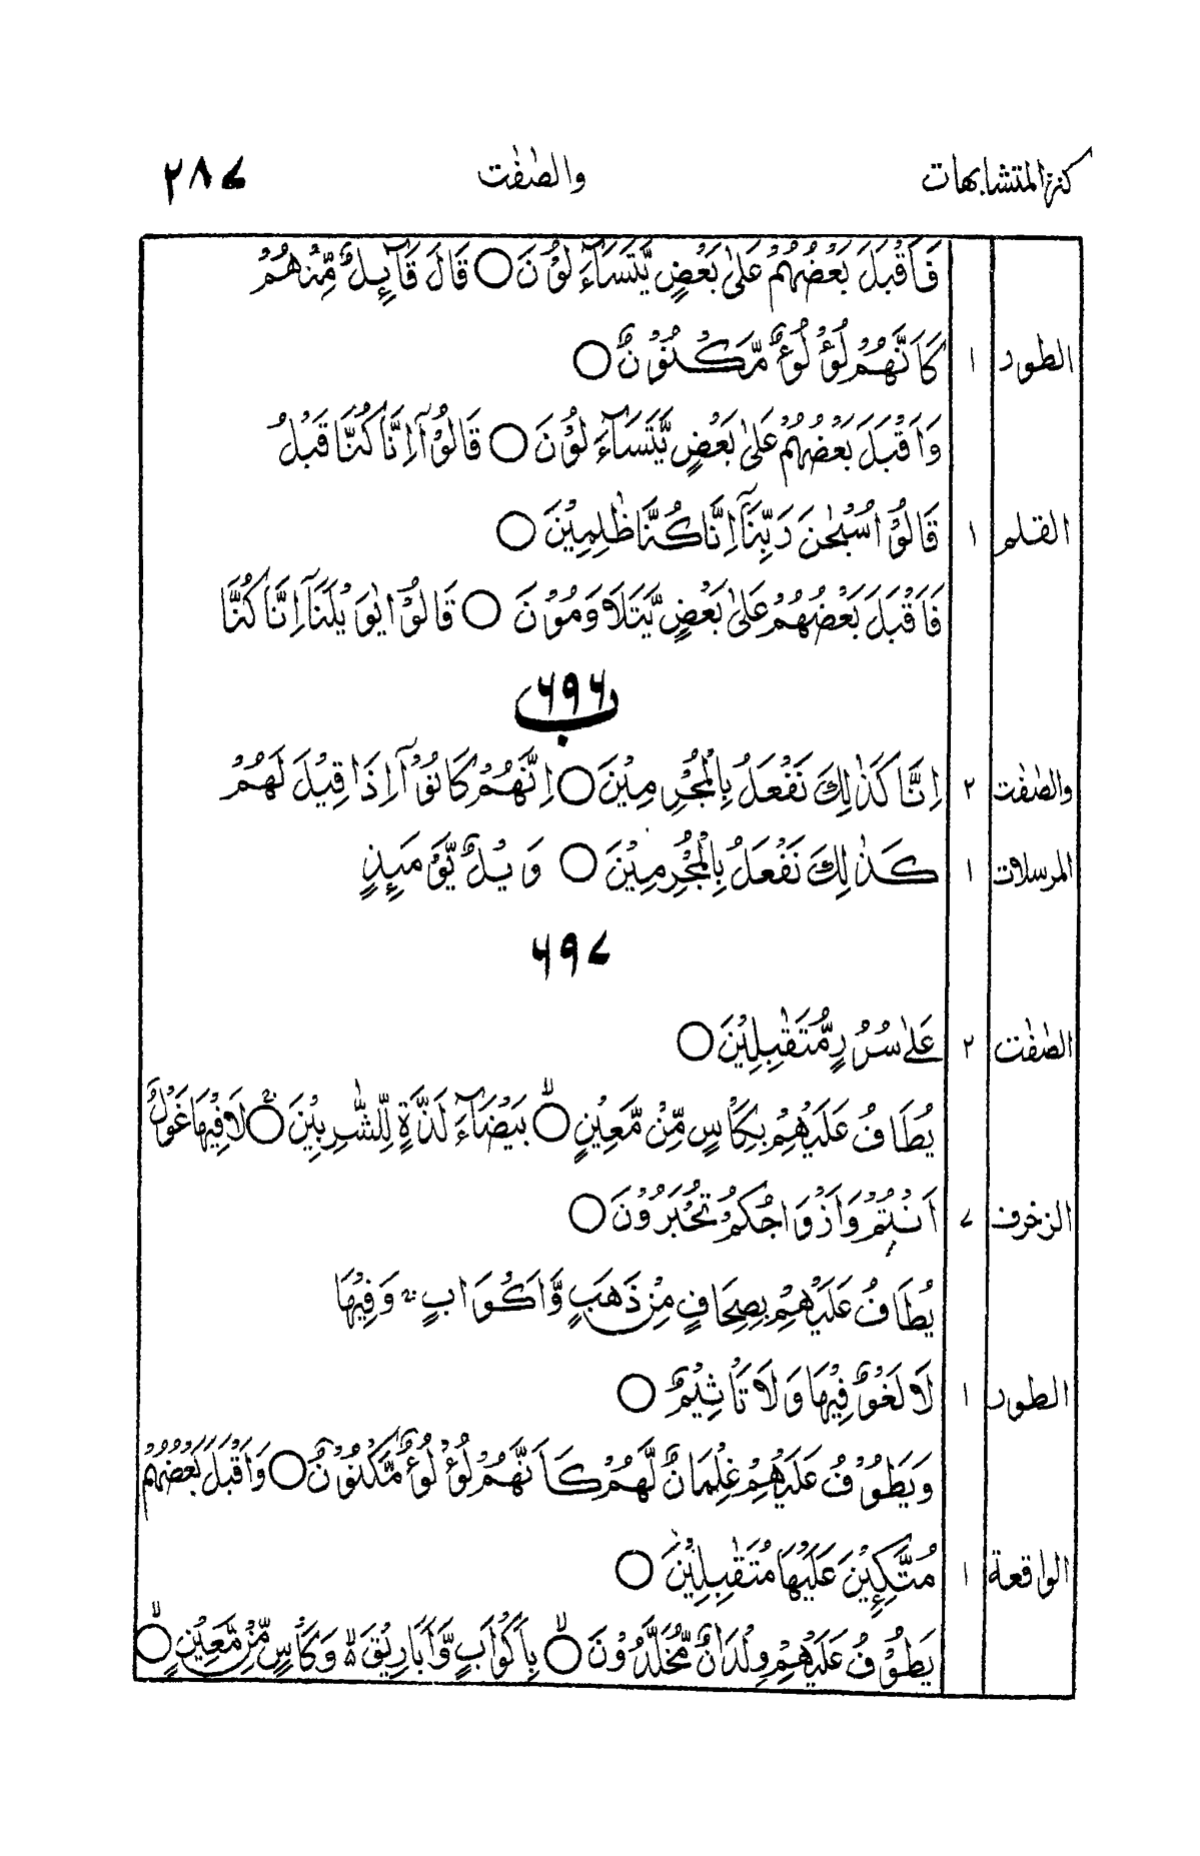 كنز المتشابهات والصّٰفّٰت ٢٨٧
فَاَقْبَلَ بَعْضُهُمْ عَلٰى بَعْضٍ يَّتَسَآءَلُوْنَ ○ قَالَ قَآئِلٌ مِّنْهُمْ
الطور ١ كَاَنَّهُمْ لُؤْلُؤٌ مَّكْنُوْنٌ ○
وَاَقْبَلَ بَعْضُهُمْ عَلٰى بَعْضٍ يَّتَسَآءَلُوْنَ ○ قَالُوْٓا اِنَّا كُنَّا قَبْلُ
القلم ١ قَالُوْا سُبْحٰنَ رَبِّنَآ اِنَّا كُنَّا ظٰلِمِيْنَ ○
فَاَقْبَلَ بَعْضُهُمْ عَلٰى بَعْضٍ يَّتَلَاوَمُوْنَ ○ قَالُوْا يٰوَيْلَنَآ اِنَّا كُنَّا
٦٩٦
ب
والصّٰفّٰت ٢ اِنَّا كَذٰلِكَ نَفْعَلُ بِالْمُجْرِمِيْنَ ○ اِنَّهُمْ كَانُوْٓا اِذَا قِيْلَ لَهُمْ
المرسلات ١ كَذٰلِكَ نَفْعَلُ بِالْمُجْرِمِيْنَ ○ وَيْلٌ يَّوْمَئِذٍ
٦٩٧
الصّٰفّٰت ٢ عَلٰى سُرُرٍ مُّتَقٰبِلِيْنَ ○
يُطَافُ عَلَيْهِمْ بِكَاْسٍ مِّنْ مَّعِيْنٍ ○ۙ بَيْضَآءَ لَذَّةٍ لِّلشّٰرِبِيْنَ ○ۚ لَا فِيْهَا غَوْلٌ
الزخرف ٧ اَنْتُمْ وَاَزْوَاجُكُمْ تُحْبَرُوْنَ ○
يُطَافُ عَلَيْهِمْ بِصِحَافٍ مِّنْ ذَهَبٍ وَّاَكْوَابٍ ۚ وَفِيْهَا
الطور ١ لَا لَغْوٌ فِيْهَا وَلَا تَاْثِيْمٌ ○
وَيَطُوْفُ عَلَيْهِمْ غِلْمَانٌ لَّهُمْ كَاَنَّهُمْ لُؤْلُؤٌ مَّكْنُوْنٌ ○ وَاَقْبَلَ بَعْضُهُمْ
الواقعة ١ مُتَّكِئِيْنَ عَلَيْهَا مُتَقٰبِلِيْنَ ○
يَطُوْفُ عَلَيْهِمْ وِلْدَانٌ مُّخَلَّدُوْنَ ○ۙ بِاَكْوَابٍ وَّاَبَارِيْقَ ۙ وَكَاْسٍ مِّنْ مَّعِيْنٍ ○ۙ